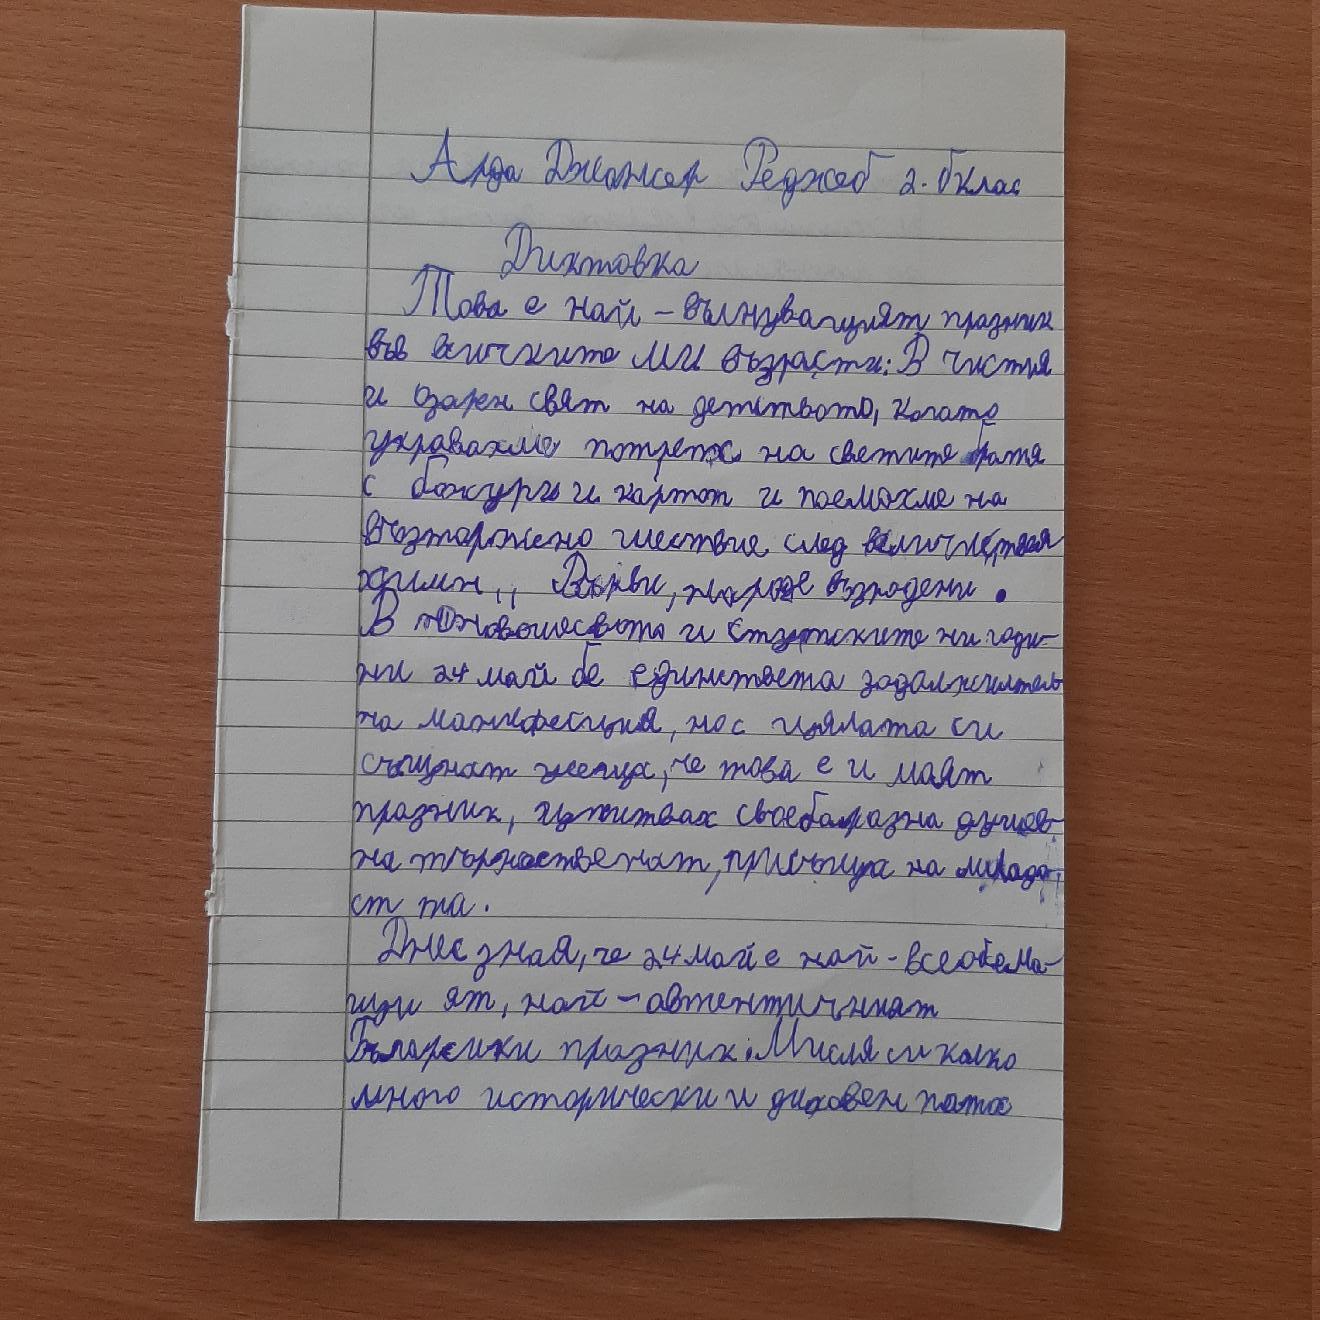 Арда Джансер Реджеб 2. б клас
Диктовка
Това е най - вълнуващият празник
във всичките ми възрасти. В чистия
и озарен свят на детството, когато
украсвахме потрета на светите братя
с божури и картон и поемахме на
възторжено шествие след величествея
химн ,, Върви, народе възродени .
В юновошеството и студтските ни годи-
ни 24 май бе единствета задължитель
на манифестция, но с цялата си
същност усещах, че това е и моят
празник, изпитвах своеобразна душев-
на тържественат, присъща на младо-
ст та .
Днес зная, че 24 май е най - всеобема-
щи ят, най - автентичният
Български празник. Мисля си колко
много исторически и духовен патос